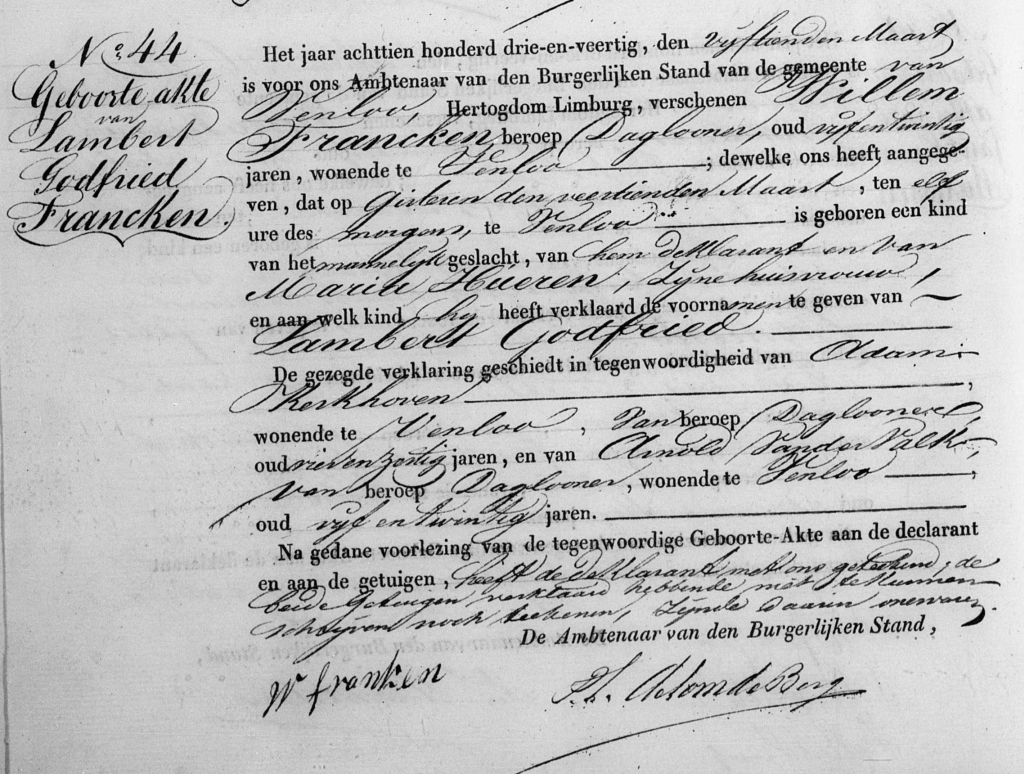 No. 44
Geboorte akte
van
Lambert
Godfried
Francken.
Het jaar achttien honderd drie-en-veertig, den vyftienden Maart
is voor ons Ambtenaar van den Burgerlijken Stand van de gemeente van
Venloo Hertogdom Limburg, verschenen Willem
Francken, beroep Daglooner, oud vyf en twintig
jaren, wonende te Venloo ; dewelke ons heeft aangege-
ven, dat op Gisteren den veertienden Maart, ten elf
ure des morgens, te Venloo is geboren een kind
van het mannelyk geslacht, van hem deklarant en van
Maria Hueren, zyne huisvrouw,
en aan welk kind hy heeft verklaard de voornamen te geven van
Lambert Godfried.
De gezegde verklaring geschiedt in tegenwoordigheid van Adam
Kerkhoven,
wonende te Venloo, Van beroep Daglooner,
oud vier en zestig jaren, en van Arnold Vander Valk,
van beroep Daglooner, wonende te Venloo,
oud vyf en twintig jaren.
Na gedane voorlezing van de tegenwoordige Geboorte-Akte aan de declarant
en aan de getuigen, heeft de deklarant met ons geteekend, de
beide Getuigen verklaard hebbende niet te kunnen
schryven noch teekenen, zynde daarin onervaren.
De Ambtenaar van den Burgerlijken Stand,
W franken
de Berg